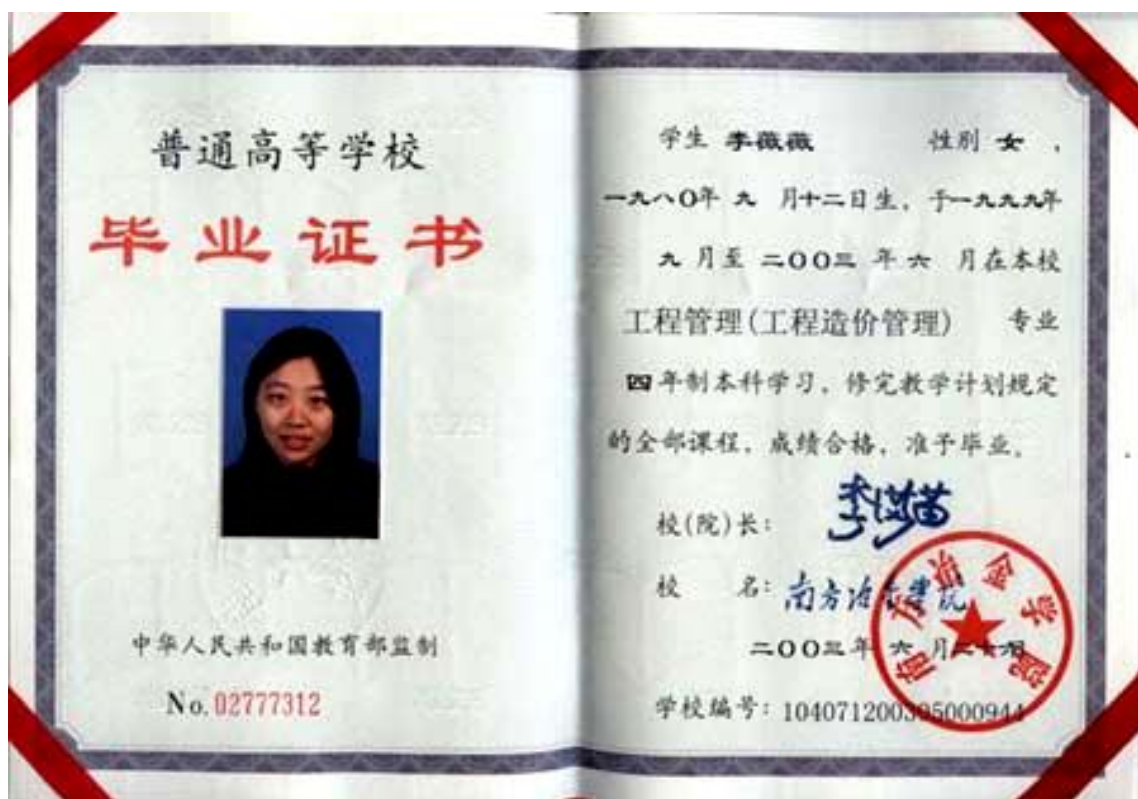 普通高等学校
毕业证书
中华人民共和国教育部监制
No.02777312
学生 李薇薇 性别 女 ,
一九八〇年 九 月十二日生, 于一九九九年
九 月至 二〇〇三 年 六 月在本校
工程管理(工程造价管理) 专业
四 年制本科学习, 修完教学计划规定
的全部课程, 成绩合格, 准予毕业。
校(院)长:
校 名: 南方冶金学院
二〇〇三年 六 月
学校编号: 104071200305000944
南方冶金学院